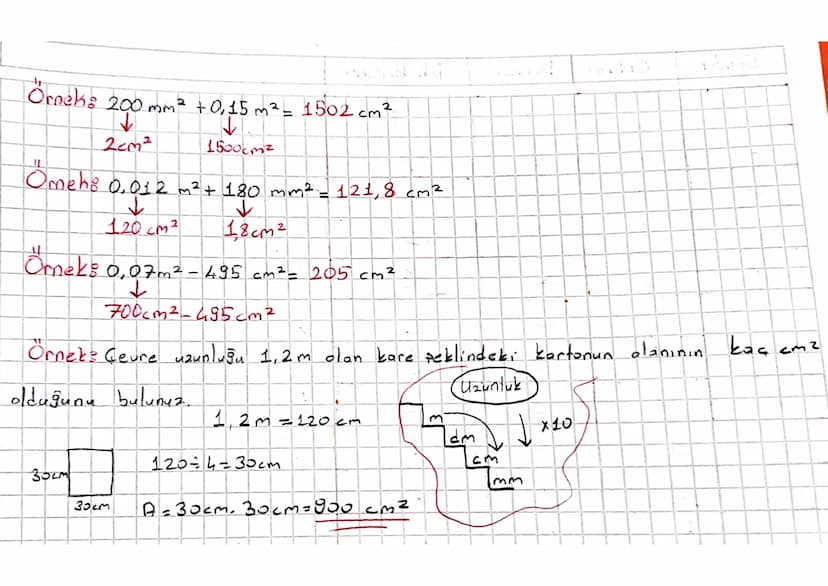 Örnek: 200 mm² + 0,15 m² = 1502 cm²
2cm² 1500cm²
Örnek: 0,012 m² + 180 mm² = 121,8 cm²
120 cm² 1,8cm²
Örnek: 0,07m² - 495 cm² = 205 cm²
700cm² - 495cm²
Örnek: Çevre uzunluğu 1,2 m olan kare şeklindeki kartonun alanının kaç cm²
olduğunu bulunuz.
Uzunluk
1,2 m = 120 cm
m
x10
dm
120 ÷ 4 = 30cm
cm
30cm
mm
30cm
A = 30cm. 30cm = 900 cm²